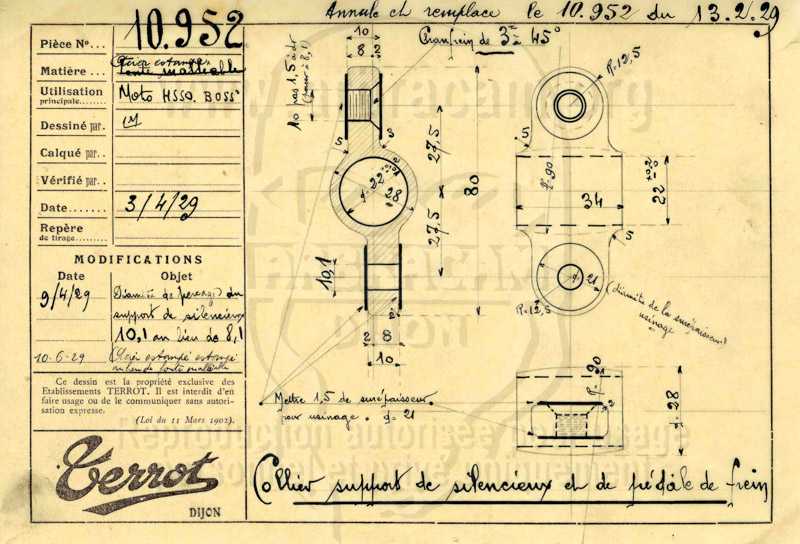 Annule et remplace le 10.952 du 13.2.29
Pièce N°... 10.952
Matière... Acier estampé
fonte malléable
Utilisation principale... Moto HSSO. BOSS°
Dessiné par.
Calqué par..
Vérifié par..
Date....... 3/4/29
Repère de tirage......
MODIFICATIONS
Date Objet
9/4/29 Diamètre de perçage du
support de silencieux
10,1 au lieu de 8,1
10-6-29 Acier estampé
au lieu de fonte malléable
Ce dessin est la propriété exclusive des
Etablissements TERROT. Il est interdit d'en
faire usage ou de le communiquer sans autori-
sation expresse.
(Loi du 11 Mars 1902).
Terrot
DIJON
Chanfrein de 3 m/m 45°
10
8 2
10 pas 1,5
S S
27,5
27,5
80
22
28
10,1
2 8 2
10
Mettre 1,5 de surépaisseur
pour usinage. d = 21
R=12,5
S
R=90
34
22
S
d=21
R=12,5
(diamètre de la surépaisseur
usinage)
R=90
28
Collier support de silencieux et de pédale de frein
DIJON
Reproduction autorisée pour usage